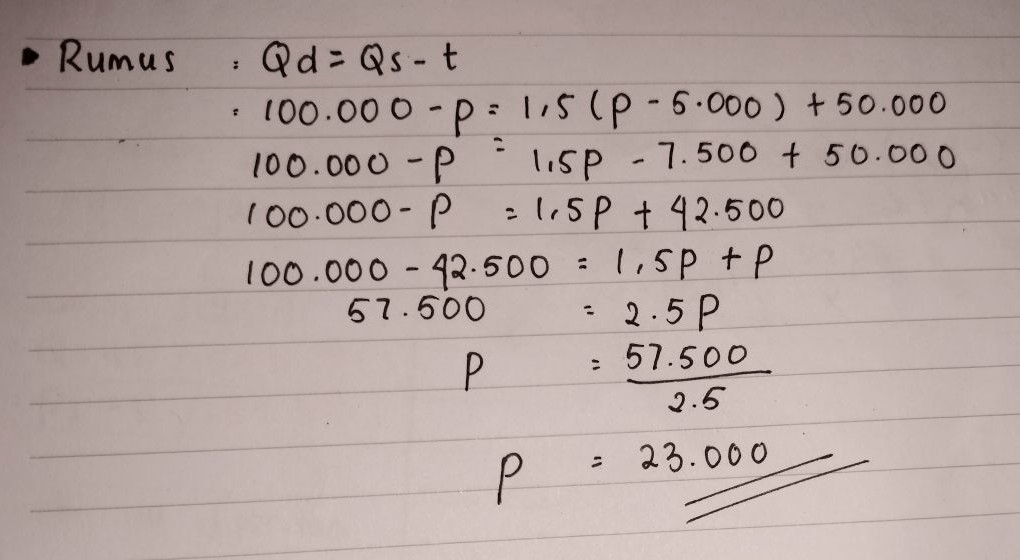 • Rumus : Qd = Qs - t
: 100.000 - p = 1,5 (p - 5.000) + 50.000
100.000 - p = 1,5p - 7.500 + 50.000
100.000 - p = 1,5p + 42.500
100.000 - 42.500 = 1,5p + p
57.500 = 2.5p
p = 57.500
2.5
p = 23.000